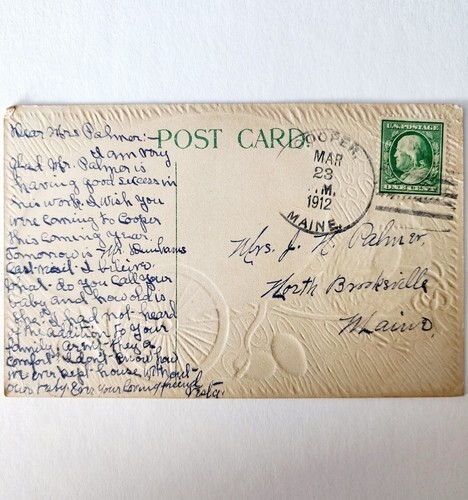 Dear Mrs Palmer:-
I am very
glad Mr. Palmer is
having good success in
his work. I wish you
were coming to Cooper
this coming year.
Tomorrow is Mr. Dunhams
last-
I believe.
What do you call your
baby and how old is
she. I had not heard
of the addition to your
family. aren't they a
comfort. I don't know how
we ever kept house without-
our
Ever your loving friend
POST CARD.
COOPER,
MAR
23
M.
1912
MAINE.
U.S. POSTAGE
ONE CENT
Mrs. J. N. Palmer,
North Brooksville
Maine.